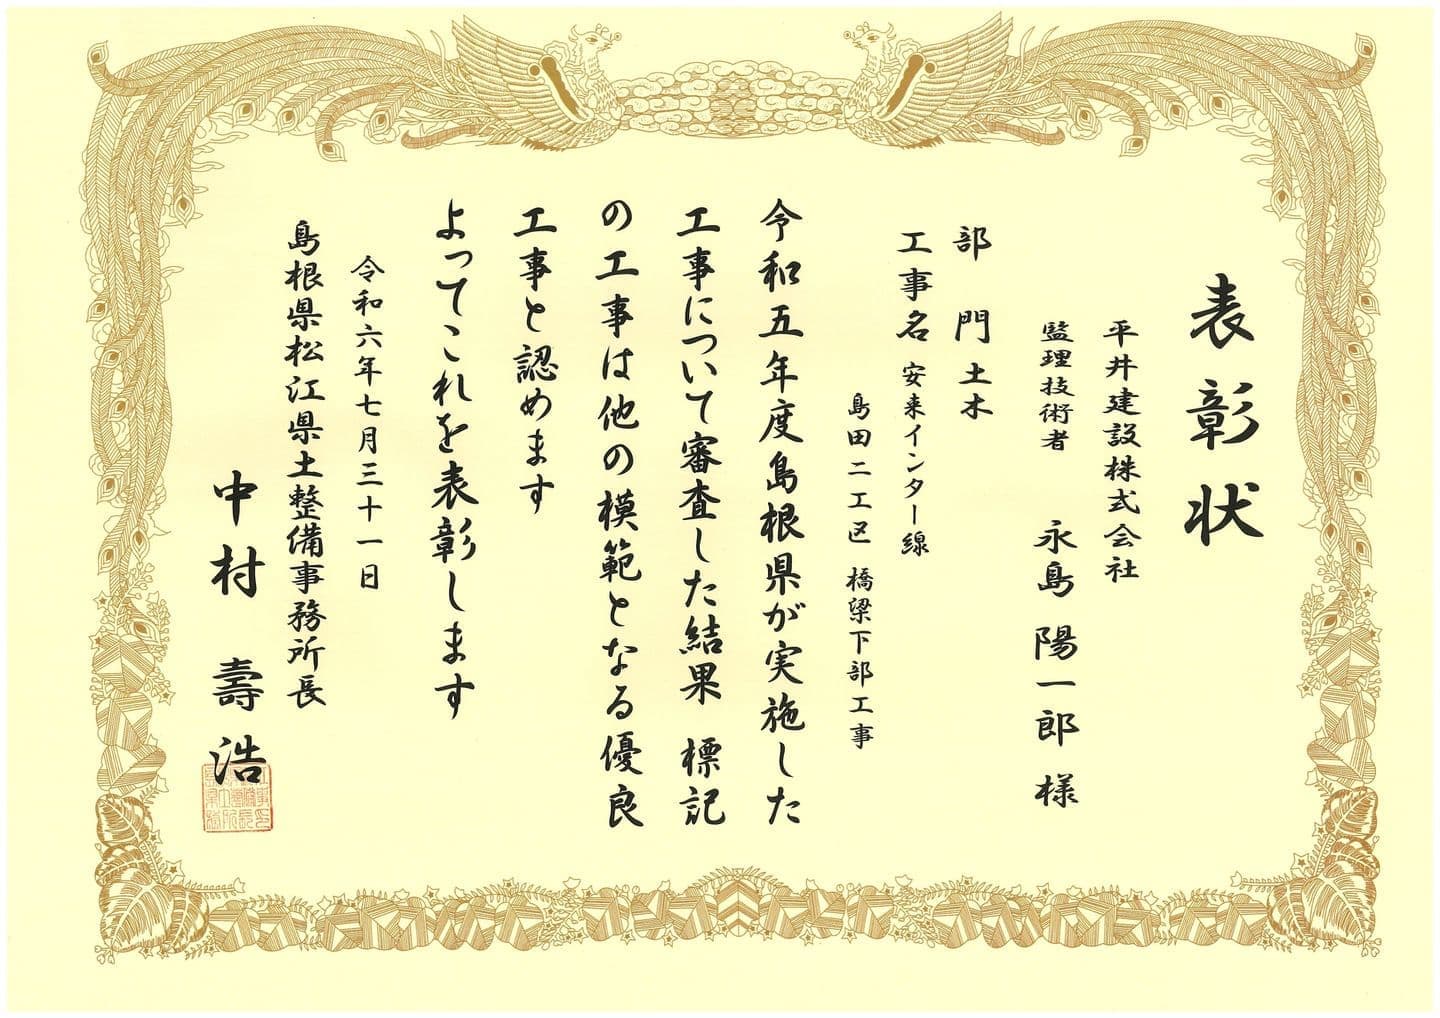 表彰状
平井建設株式会社
監理技術者 永島 陽一郎 様
部 門 土木
工事名 安来インター線
島田二工区 橋梁下部工事
令和五年度島根県が実施した
工事について審査した結果 標記
の工事は他の模範となる優良
工事と認めます
よってこれを表彰します
令和六年七月三十一日
島根県松江県土整備事務所長
中村 壽浩